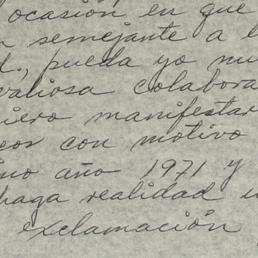 ocasión en que
semejante a l
d., pueda yo mu
valiosa colabora
iero manifestar
eos con motivo
imo año 1971 y
haga realidad u
exclamación